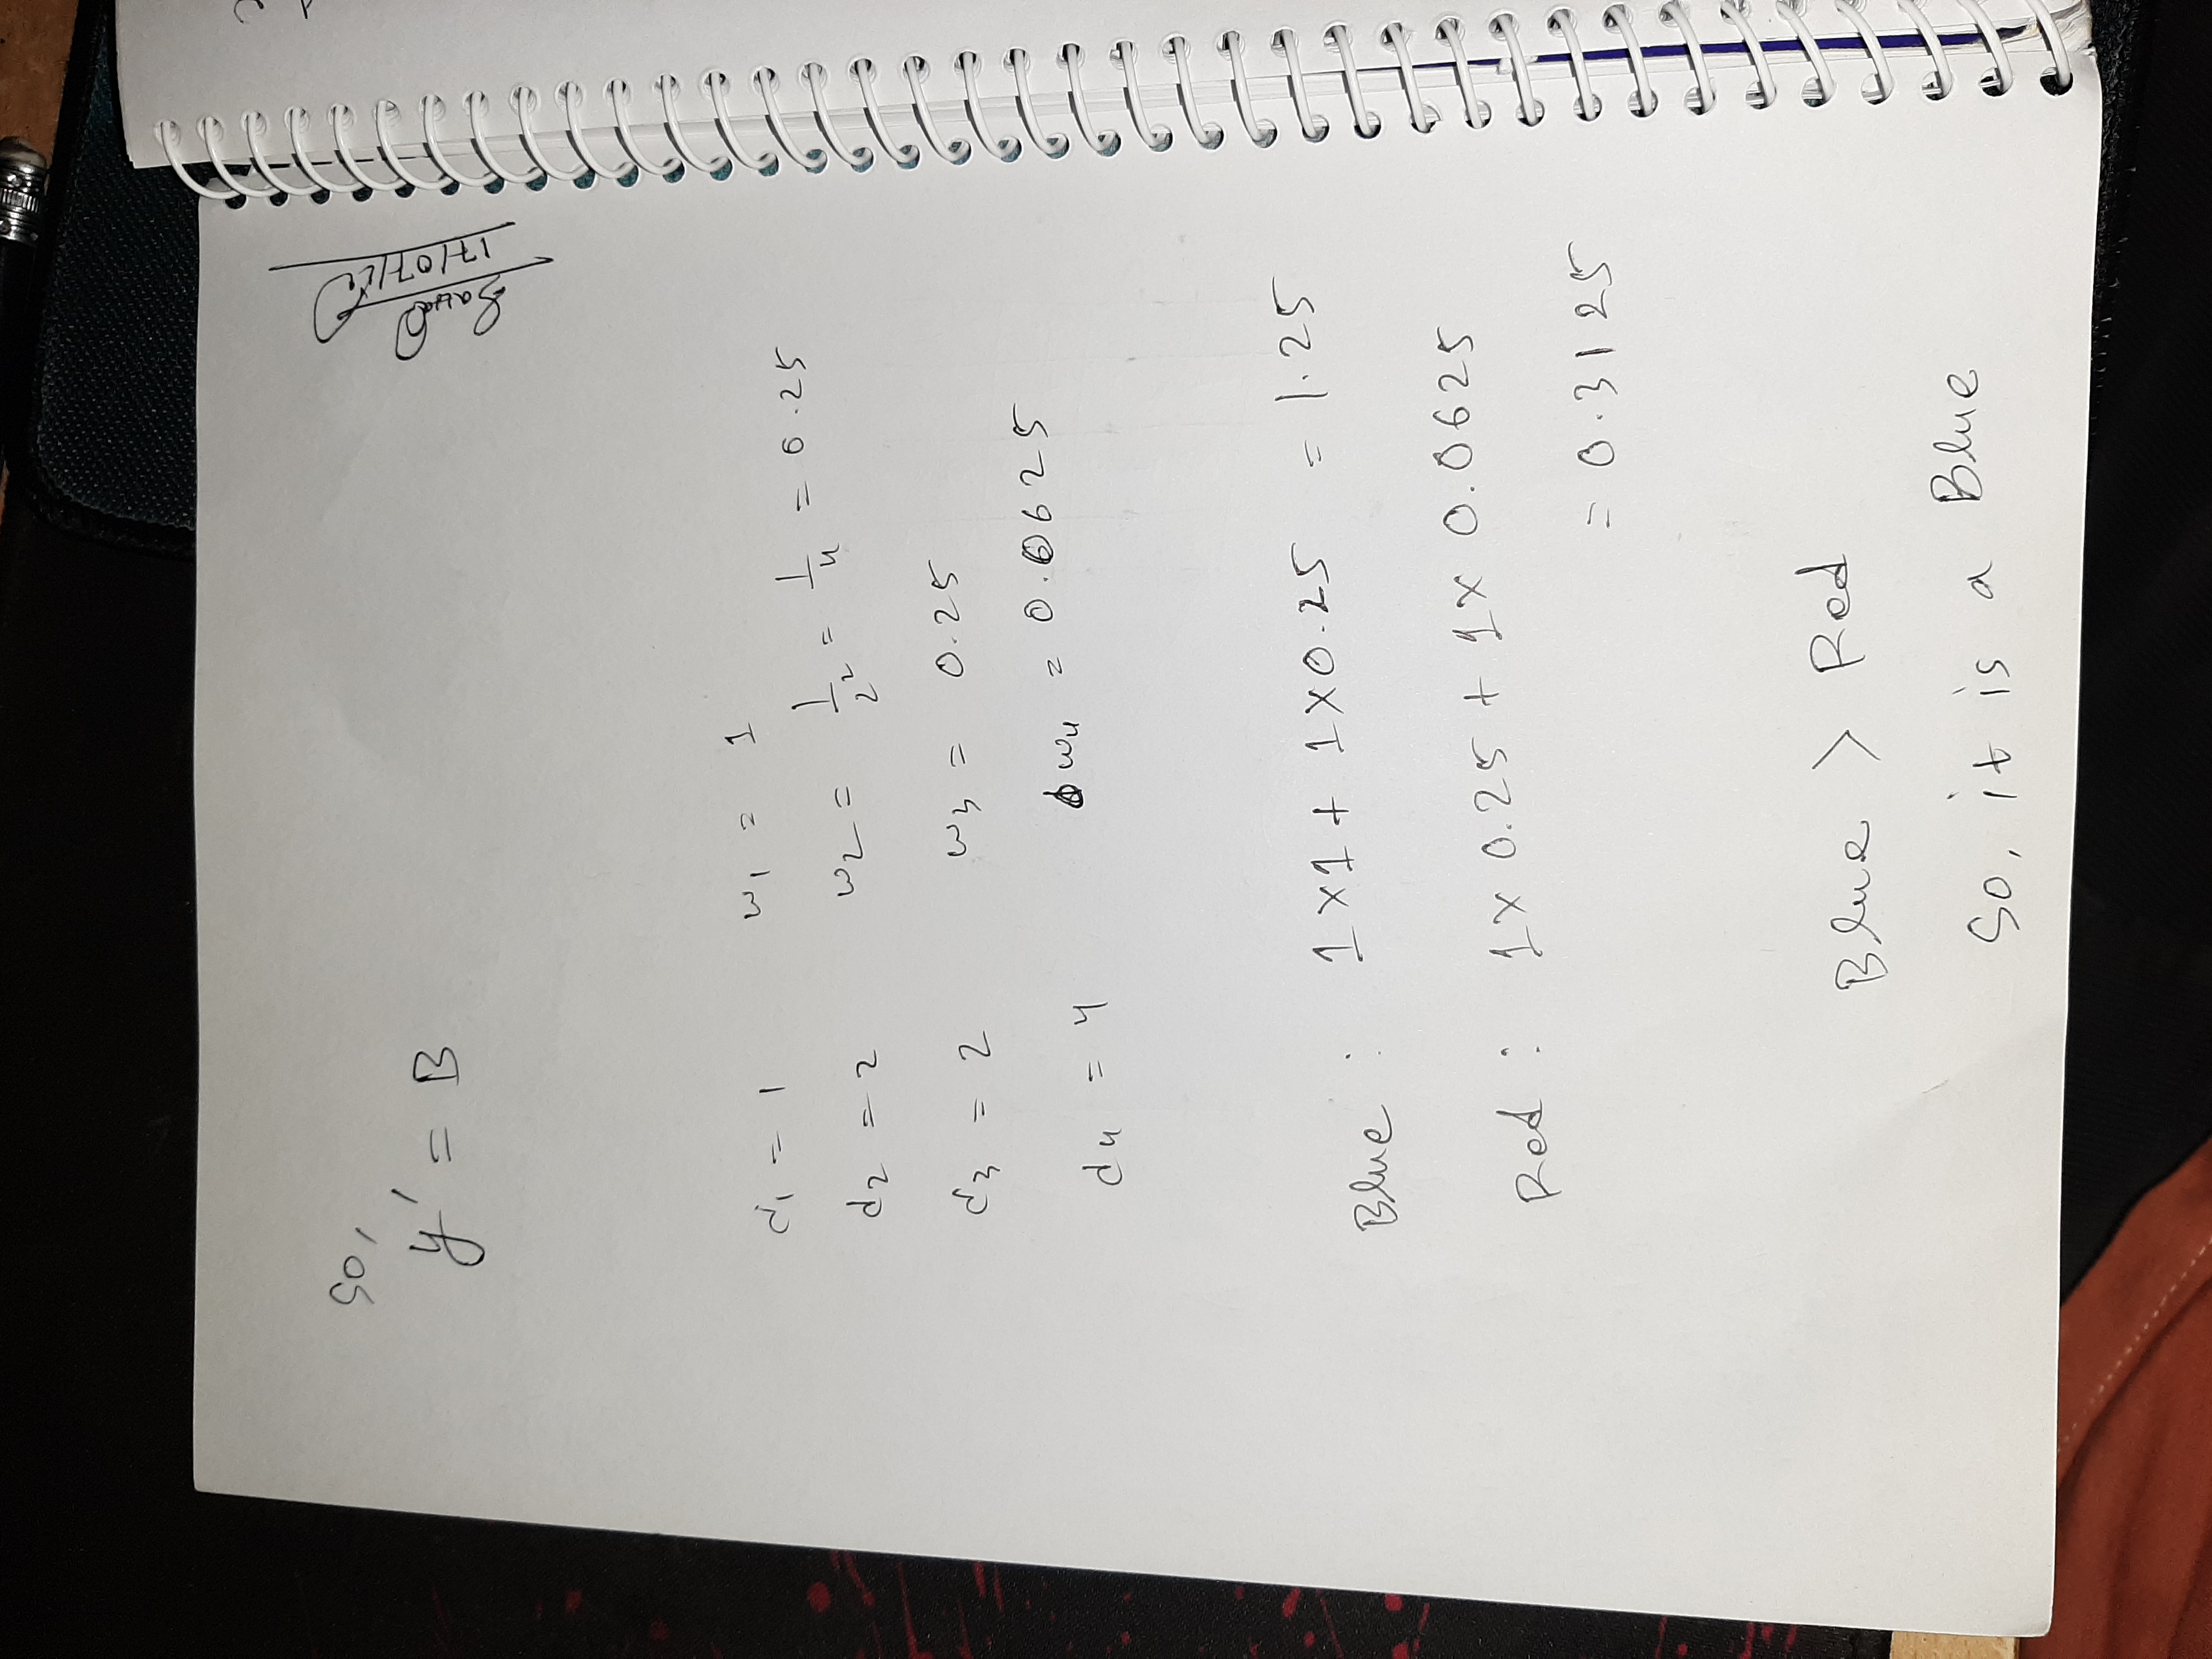 So,
y' = B
17/07/
d1 = 1 w1 = 1
d2 = 2 w2 = 1/2² = 1/4 = 0.25
d3 = 2 w3 = 0.25
d4 = 4 w4 = 0.0625
Blue : 1 X 1 + 1 X 0.25 = 1.25
Red : 1 X 0.25 + 1 X 0.0625
= 0.3125
Blue > Red
So, it is a Blue